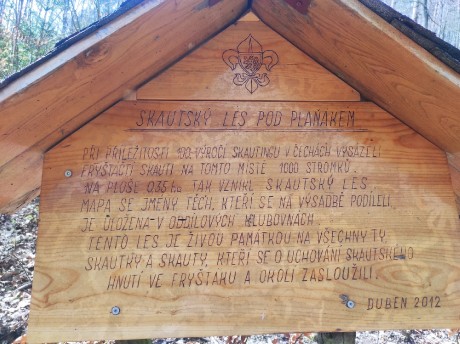 SKAUTSKÝ LES POD PLAŇÁKEM
PŘI PŘÍLEŽITOSTI 100. VÝROČÍ SKAUTINGU V ČECHÁCH VYSÁZELI
FRYŠTAČTÍ SKAUTI NA TOMTO MÍSTĚ 1000 STROMKŮ.
NA PLOŠE 0,35 ha TAK VZNIKL SKAUTSKÝ LES.
MAPA SE JMÉNY TĚCH, KTEŘÍ SE NA VÝSADBĚ PODÍLELI,
JE ULOŽENA V ODDÍLOVÝCH KLUBOVNÁCH.
TENTO LES JE ŽIVOU PAMÁTKOU NA VŠECHNY TY
SKAUTKY A SKAUTY, KTEŘÍ SE O UCHOVÁNÍ SKAUTSKÉHO
HNUTÍ VE FRYŠTÁKU A OKOLÍ ZASLOUŽILI.
DUBEN 2012